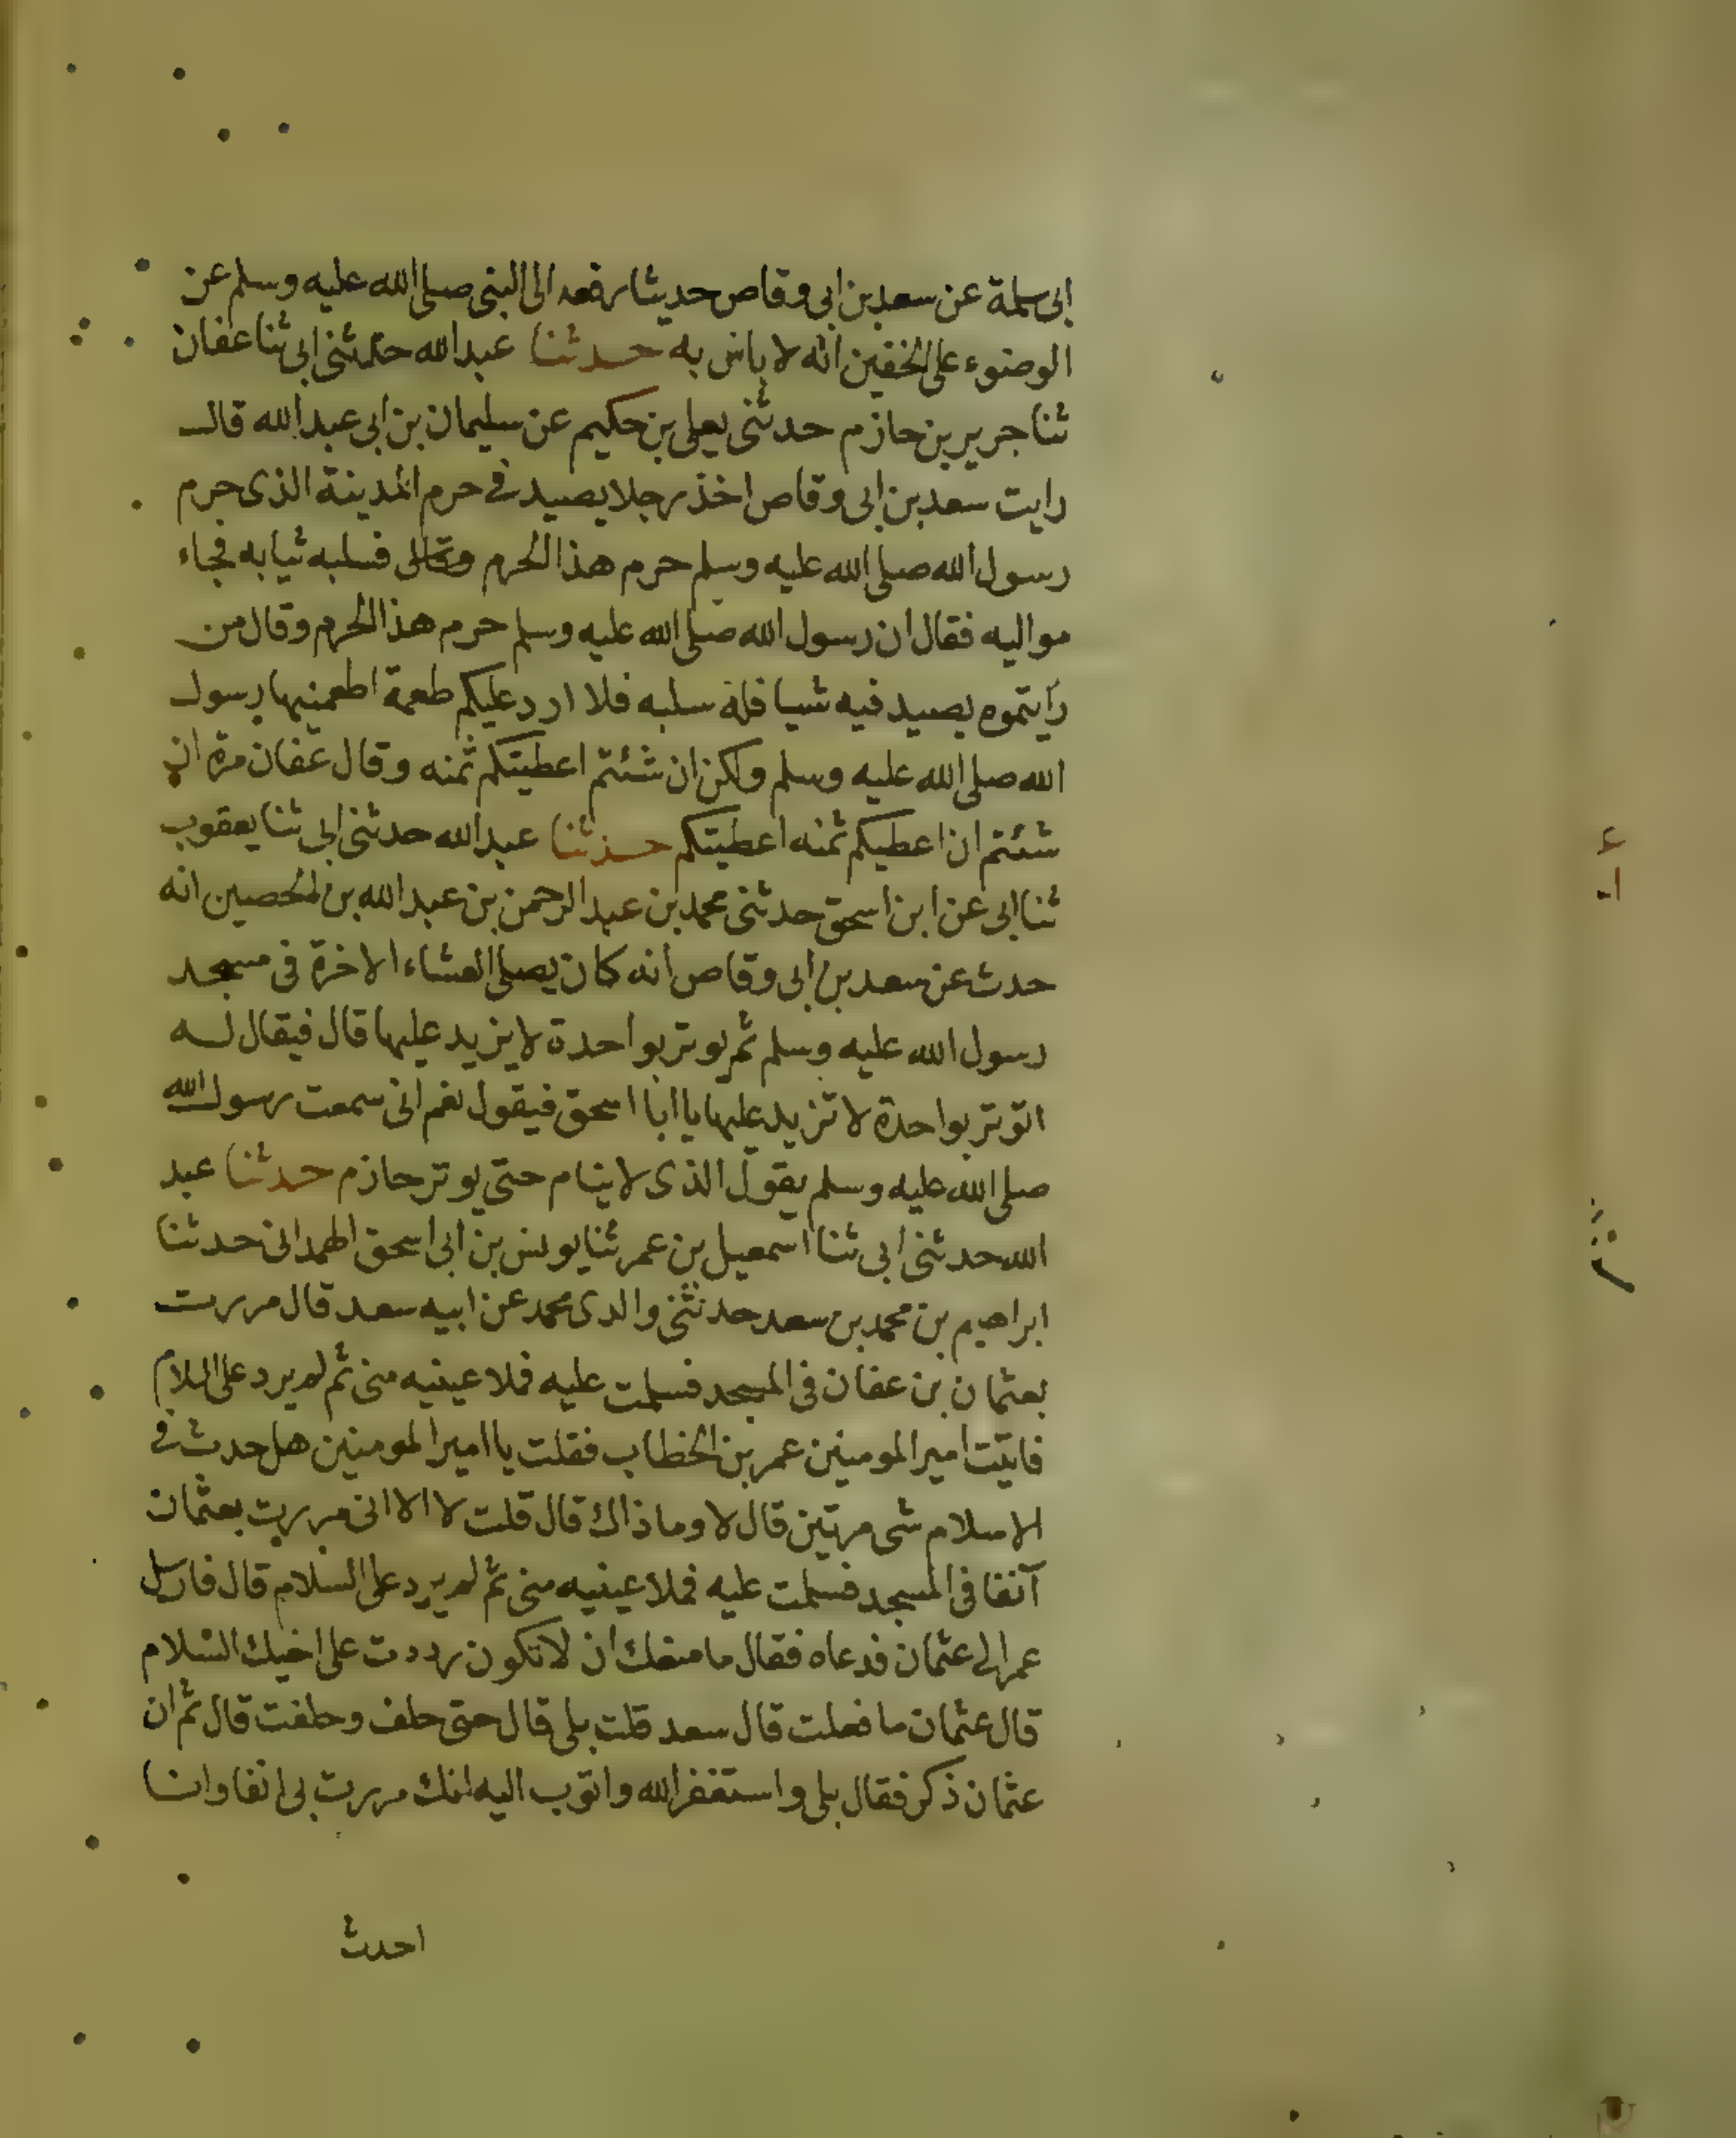 ابى سلمة عن سعد بن ابى وقاص حديثا رفعه الى النبى صلى الله عليه وسلم عن
الوضوء على الخفين انه لا باس به حدثنا عبد الله حدثنى ابى ثنا عفان
ثنا جرير بن حازم حدثنى يعلى بن حكيم عن سليمان بن ابى عبد الله قال
رايت سعد بن ابى وقاص اخذ رجلا يصيد فى حرم المدينة الذى حرم
رسول الله صلى الله عليه وسلم حرم هذا الحرم فسلبه ثيابه فجاء
مواليه فقال ان رسول الله صلى الله عليه وسلم حرم هذا الحرم وقال من
رايتموه يصيد فيه شيا فله سلبه فلا ارد عليكم طعمة اطعمنيها رسول
الله صلى الله عليه وسلم ولكن ان شئتم اعطيتكم ثمنه وقال عفان مرة ان
شئتم ان اعطيكم ثمنه اعطيتكم حدثنا عبد الله حدثنى ابى ثنا يعقوب
ثنا ابى عن ابن اسحق حدثنى محمد بن عبد الرحمن بن عبد الله بن الحصين انه
حدث عن سعد بن ابى وقاص انه كان يصلى العشاء الاخرة فى مسجد
رسول الله عليه وسلم ثم يوتر بواحدة لا يزيد عليها قال فيقال له
اتوتر بواحدة لا تزيد عليها يا ابا اسحق فيقول نعم انى سمعت رسول الله
صلى الله عليه وسلم يقول الذى لا ينام حتى يوتر حازم حدثنا عبد
الله حدثنى ابى ثنا اسمعيل بن عمر ثنا يونس بن ابى اسحق الهمدانى حدثنا
ابراهيم بن محمد بن سعد حدثنى والدى محمد عن ابيه سعد قال مررت
بعثمان بن عفان فى المسجد فسلمت عليه فملا عينيه منى ثم لم يرد على السلام
فاتيت امير المومنين عمر بن الخطاب فقلت يا امير المومنين هل حدث فى
الاسلام شى مرتين قال لا وما ذاك قال قلت لا الا انى مررت بعثمان
آنفا فى المسجد فسلمت عليه فملا عينيه منى ثم لم يرد على السلام قال فارسل
عمر الى عثمان فدعاه فقال ما منعك ان لا تكون رددت على اخيك السلام
قال عثمان ما فعلت قال سعد قلت بلى قال حتى حلف وحلفت قال ثم ان
عثمان ذكر فقال بلى واستغفر الله واتوب اليه انك مررت بى انفا وانا
احدث